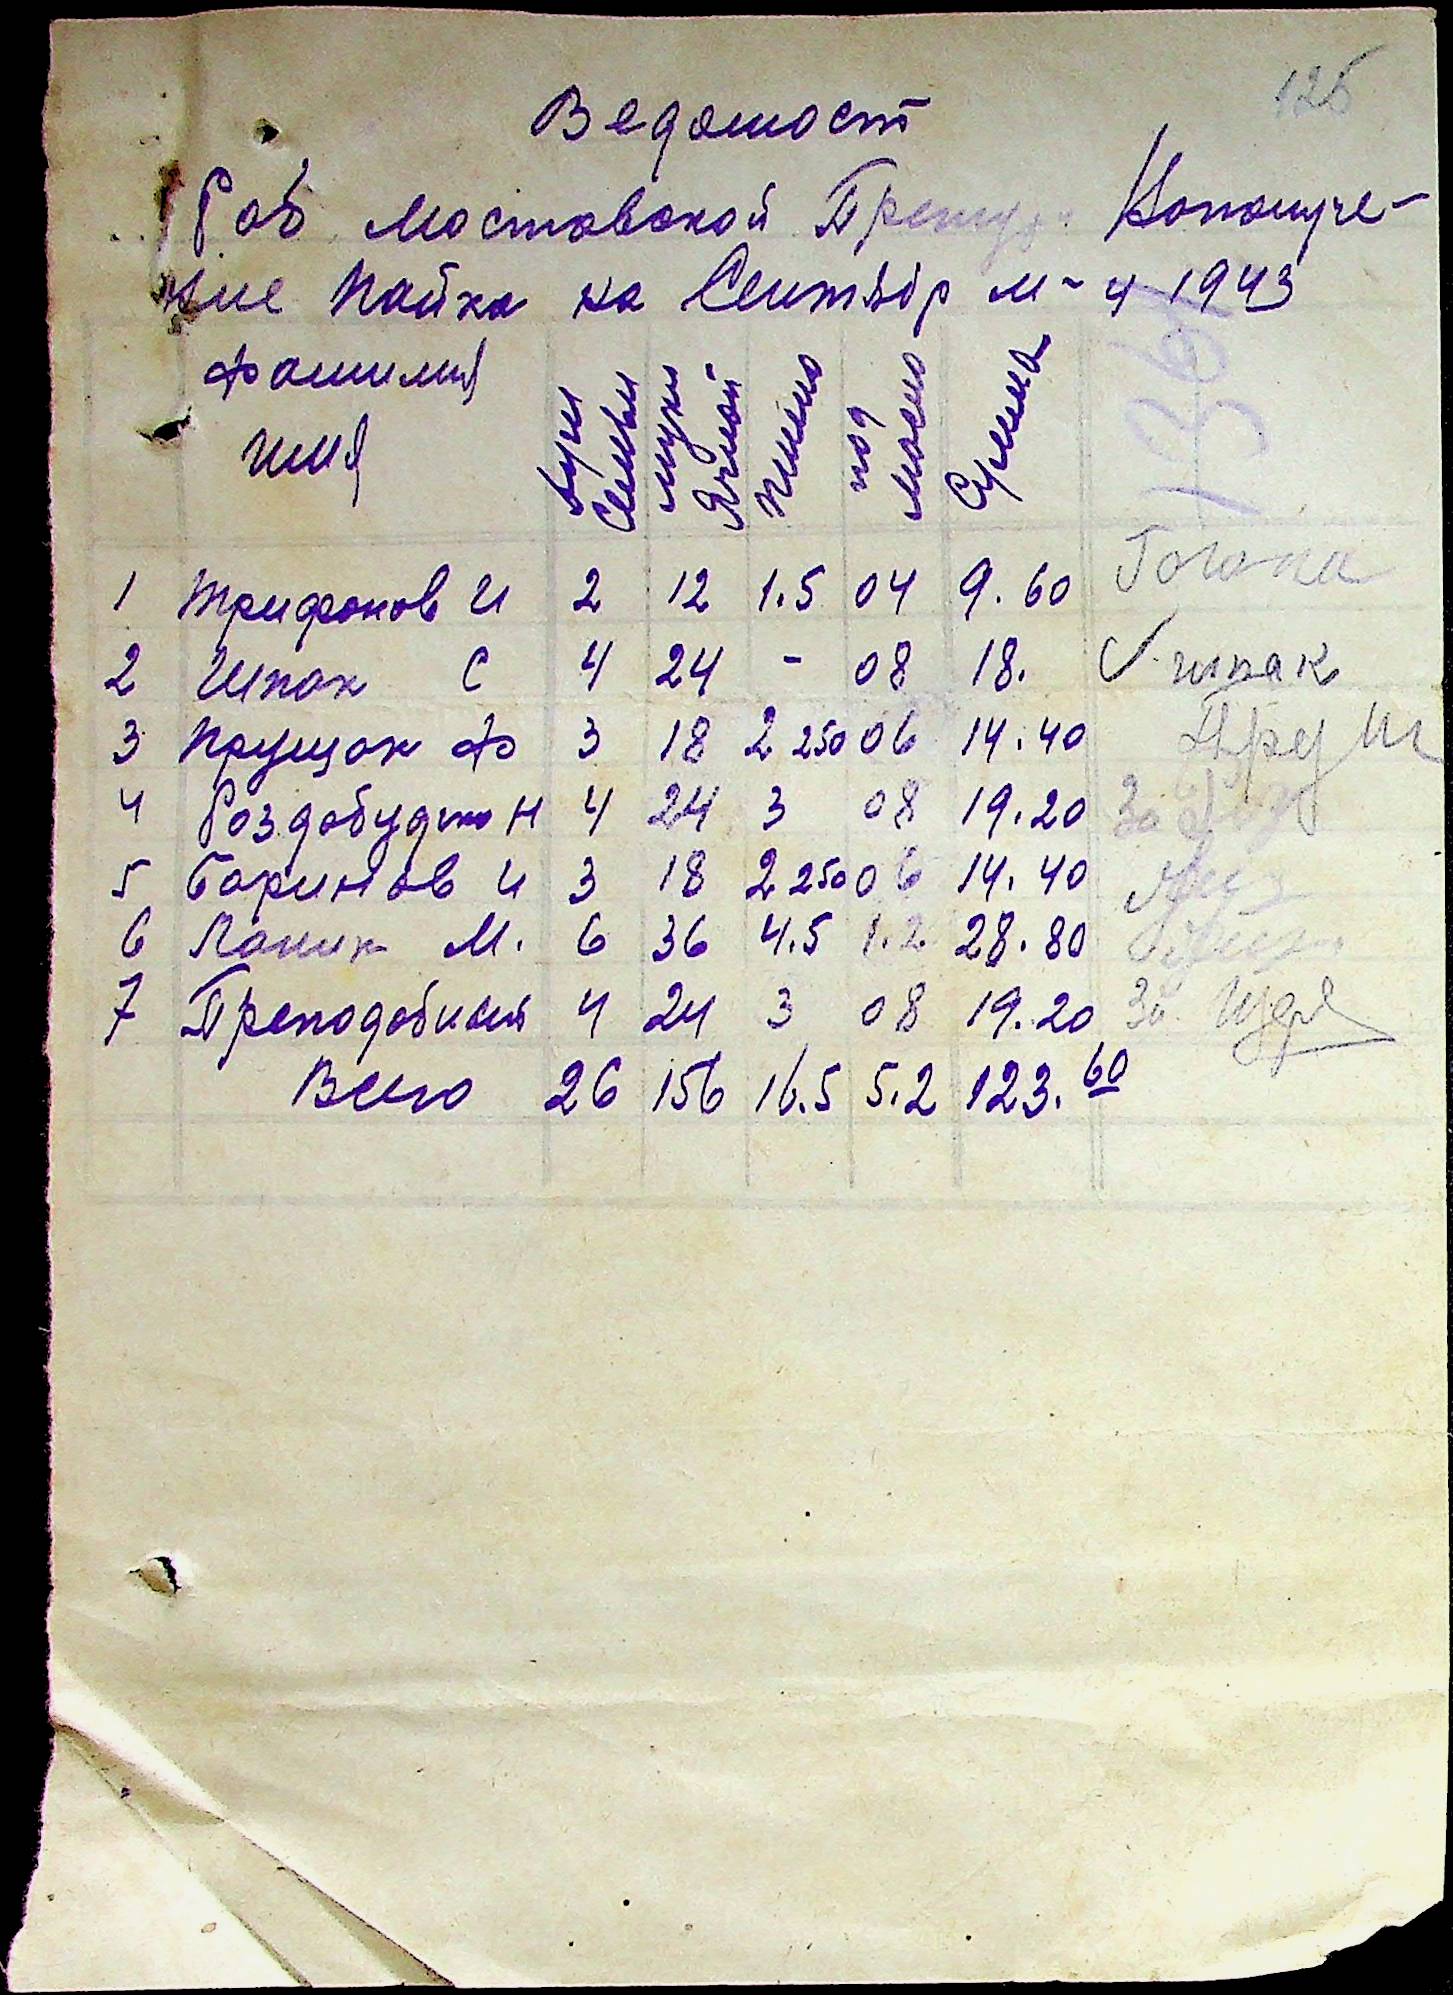 125
Ведомост
Роб мостовской На получе-
ние Пайка на Сентябр м-ц 1943
фамилия имя душ семьи муки Ячмой пшено под масло Сумма
1 Трифонов И 2 12 1.5 04 9.60
2 Шпак С 4 24 - 08 18. шпак
3 Прущак Ф 3 18 2 250 06 14.40
4 Роздобудько Н 4 24 3 08 19.20 За
5 Баринов И 3 18 2 250 06 14.40
6 Панин М. 6 36 4.5 1.2 28.80
7 4 24 3 08 19.20 За
Всего 26 156 16.5 5.2 123.60